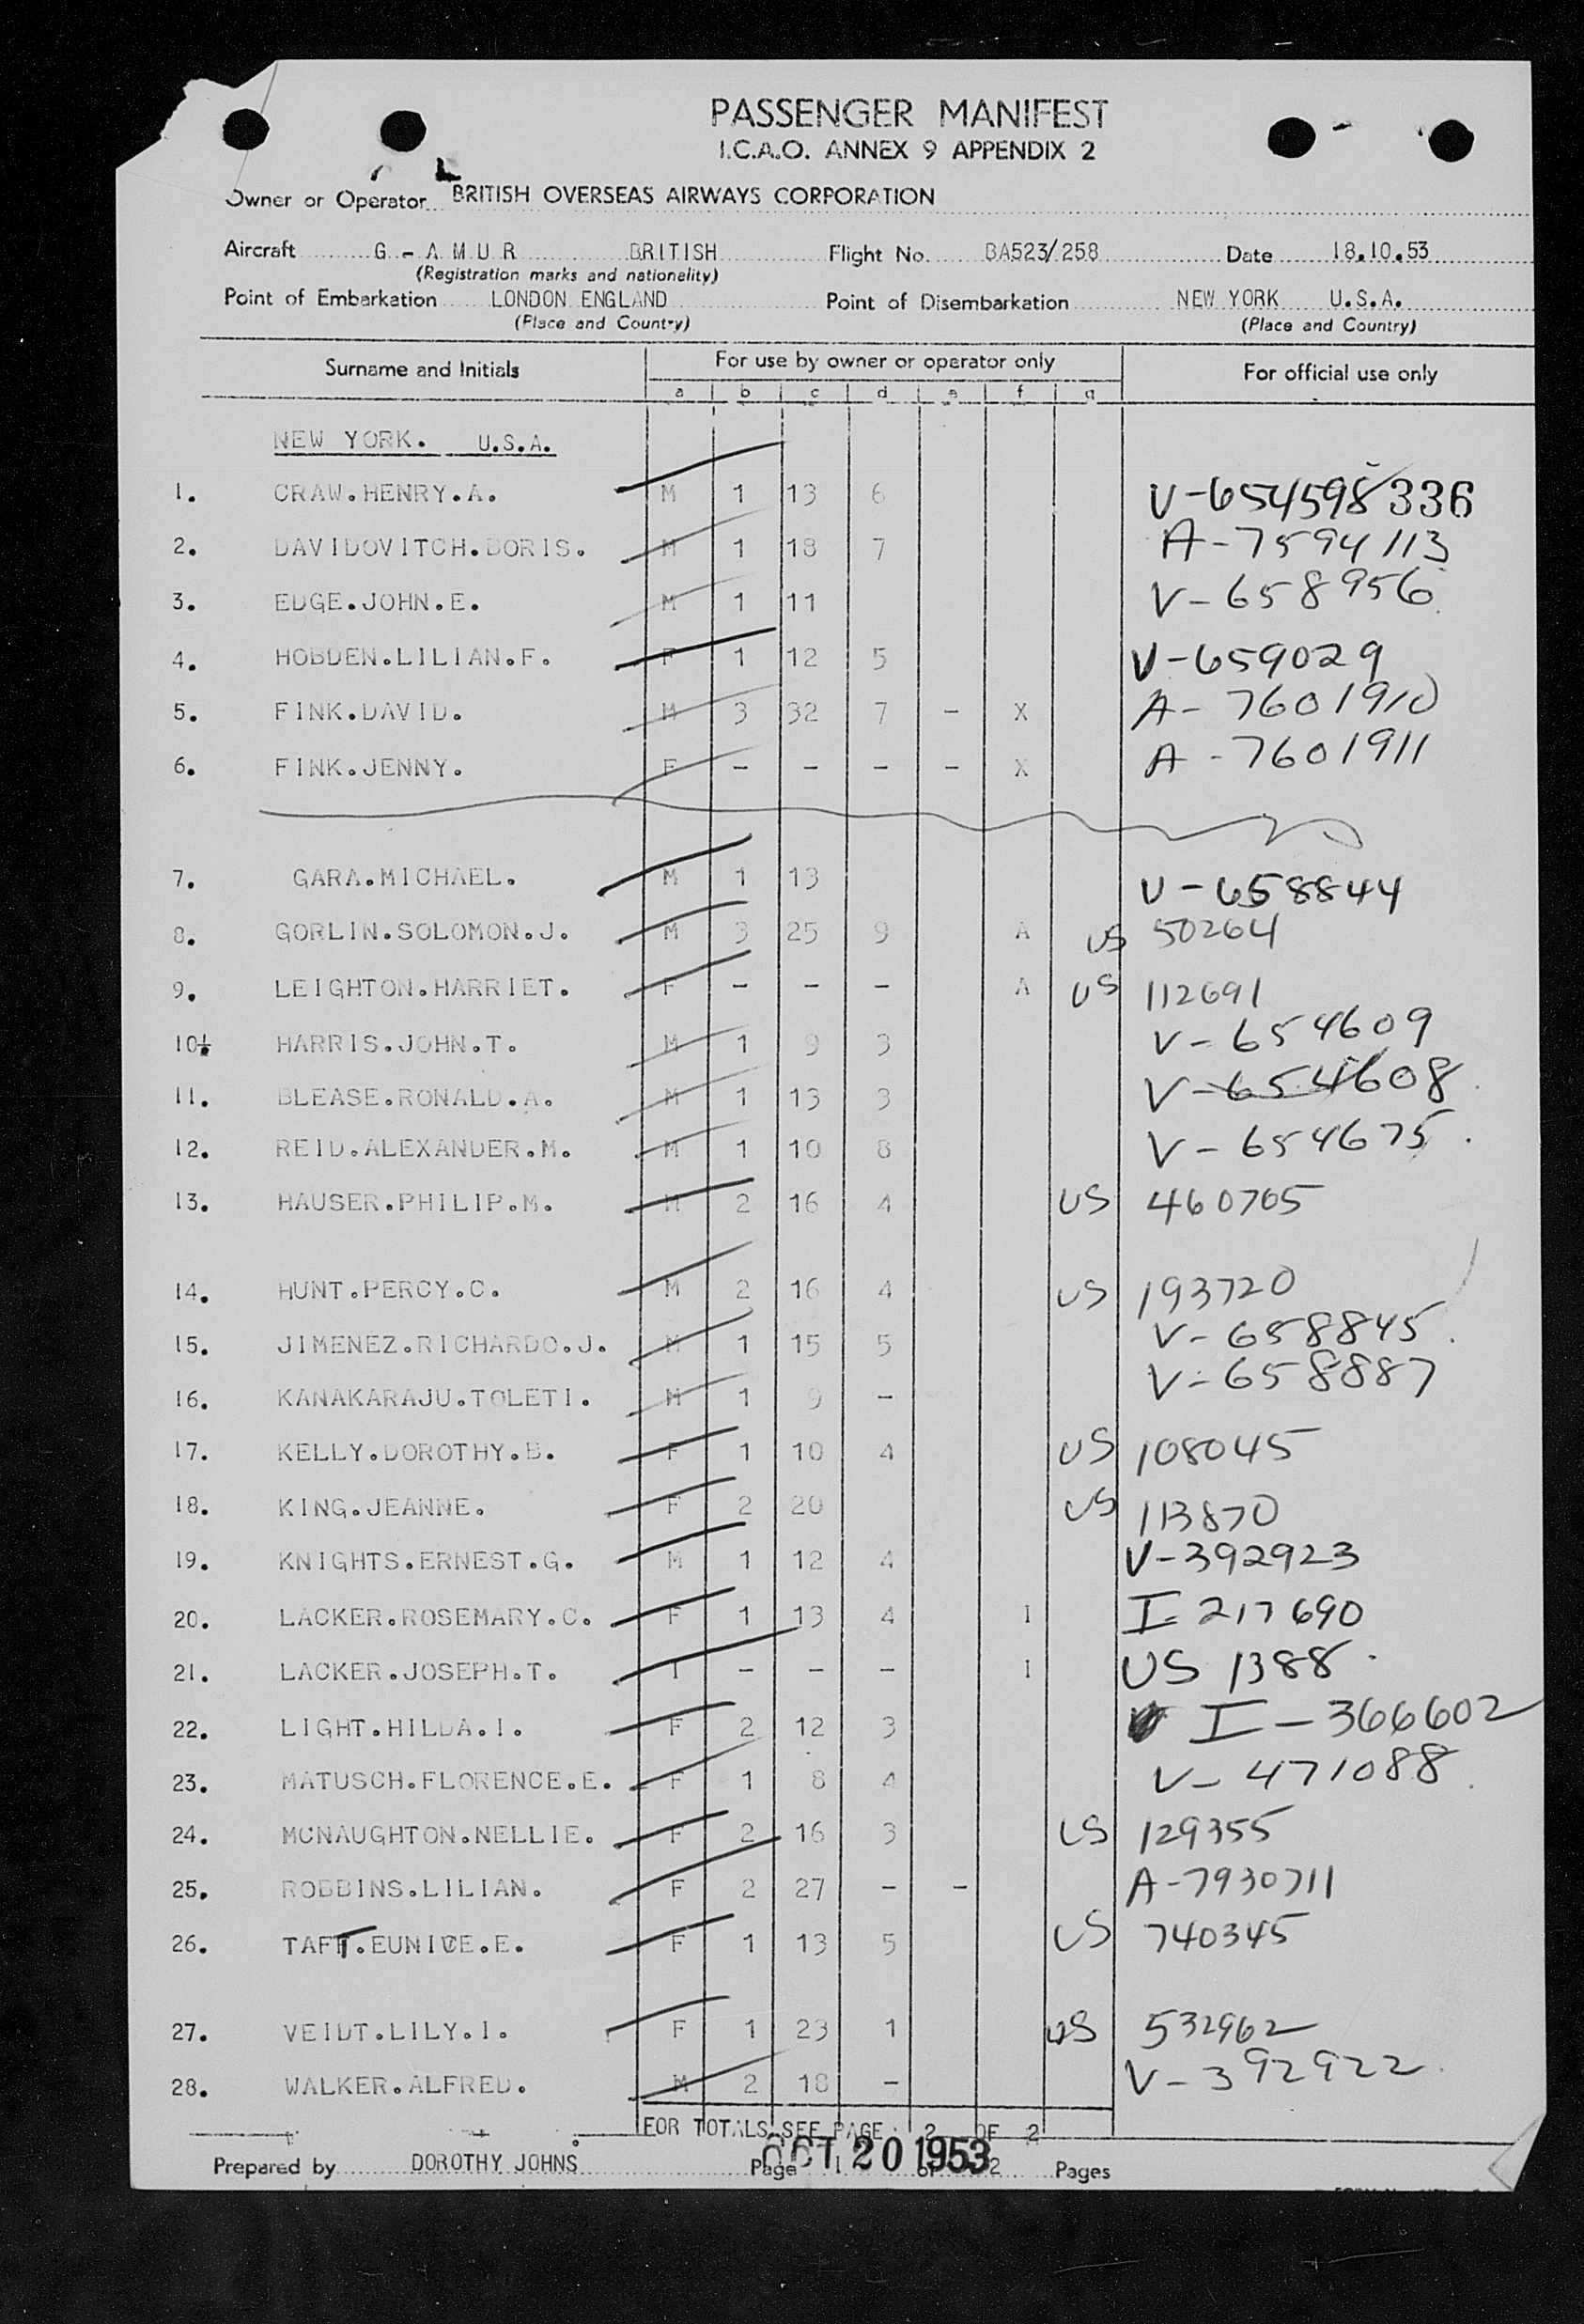 PASSENGER MANIFEST
I.C.A.O. ANNEX 9 APPENDIX 2
Owner or Operator BRITISH OVERSEAS AIRWAYS CORPORATION
Aircraft G - A M U R BRITISH Flight No. BA523/258 Date 18.10.53
(Registration marks and nationality)
Point of Embarkation LONDON ENGLAND Point of Disembarkation NEW YORK U.S.A.
(Place and Country) (Place and Country)
Surname and Initials For use by owner or operator only For official use only
a b c d e f g
NEW YORK. U.S.A.
1. CRAW.HENRY.A. M 1 13 6 V-654598 336
2. DAVIDOVITCH.BORIS. M 1 18 7 A-7594113
3. EDGE.JOHN.E. M 1 11 V-658956
4. HOBDEN.LILIAN.F. F 1 12 5 V-659029
5. FINK.DAVID. M 3 32 7 - X A-7601910
6. FINK.JENNY. F - - - - X A-7601911
7. GARA.MICHAEL. M 1 13 V-658844
8. GORLIN.SOLOMON.J. M 3 25 9 A US 50264
9. LEIGHTON.HARRIET. F - - - A US 112691
10. HARRIS.JOHN.T. M 1 9 3 V-654609
11. BLEASE.RONALD.A. M 1 13 3 V-654608
12. REID.ALEXANDER.M. M 1 10 8 V-654675
13. HAUSER.PHILIP.M. M 2 16 4 US 460705
14. HUNT.PERCY.C. M 2 16 4 US 193720
15. JIMENEZ.RICHARDO.J. M 1 15 5 V-658845
16. KANAKARAJU.TOLETI. M 1 9 - V-658887
17. KELLY.DOROTHY.B. F 1 10 4 US 108045
18. KING.JEANNE. F 2 20 US 113870
19. KNIGHTS.ERNEST.G. M 1 12 4 V-392923
20. LACKER.ROSEMARY.C. F 1 13 4 I I-217690
21. LACKER.JOSEPH.T. I - - - I US 1388
22. LIGHT.HILDA.I. F 2 12 3 I-366602
23. MATUSCH.FLORENCE.E. F 1 8 4 V-471088
24. MCNAUGHTON.NELLIE. F 2 16 3 US 129355
25. ROBBINS.LILIAN. F 2 27 - - A-7930711
26. TAFT.EUNICE.E. F 1 13 5 US 740345
27. VEIDT.LILY.I. F 1 23 1 US 532962
28. WALKER.ALFRED. M 2 18 - V-392922
FOR TOTALS SEE PAGE 2 OF 2
OCT 20 1953
Prepared by DOROTHY JOHNS Page 1 of 2 Pages